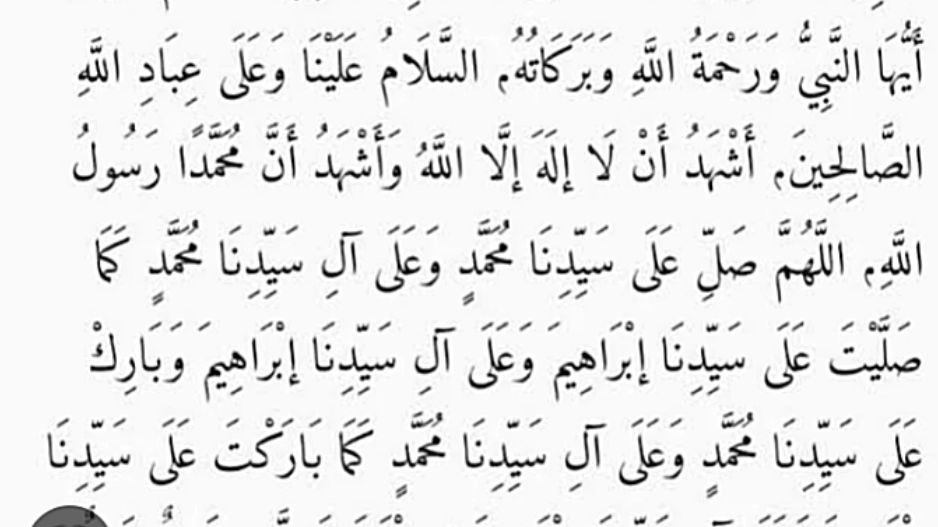 أَيُّهَا النَّبِيُّ وَرَحْمَةُ اللَّهِ وَبَرَكَاتُهُ، السَّلَامُ عَلَيْنَا وَعَلَى عِبَادِ اللَّهِ
الصَّالِحِينَ، أَشْهَدُ أَنْ لَا إِلَهَ إِلَّا اللَّهُ وَأَشْهَدُ أَنَّ مُحَمَّدًا رَسُولُ
اللَّهِ، اللَّهُمَّ صَلِّ عَلَى سَيِّدِنَا مُحَمَّدٍ وَعَلَى آلِ سَيِّدِنَا مُحَمَّدٍ كَمَا
صَلَّيْتَ عَلَى سَيِّدِنَا إِبْرَاهِيمَ وَعَلَى آلِ سَيِّدِنَا إِبْرَاهِيمَ وَبَارِكْ
عَلَى سَيِّدِنَا مُحَمَّدٍ وَعَلَى آلِ سَيِّدِنَا مُحَمَّدٍ كَمَا بَارَكْتَ عَلَى سَيِّدِنَا